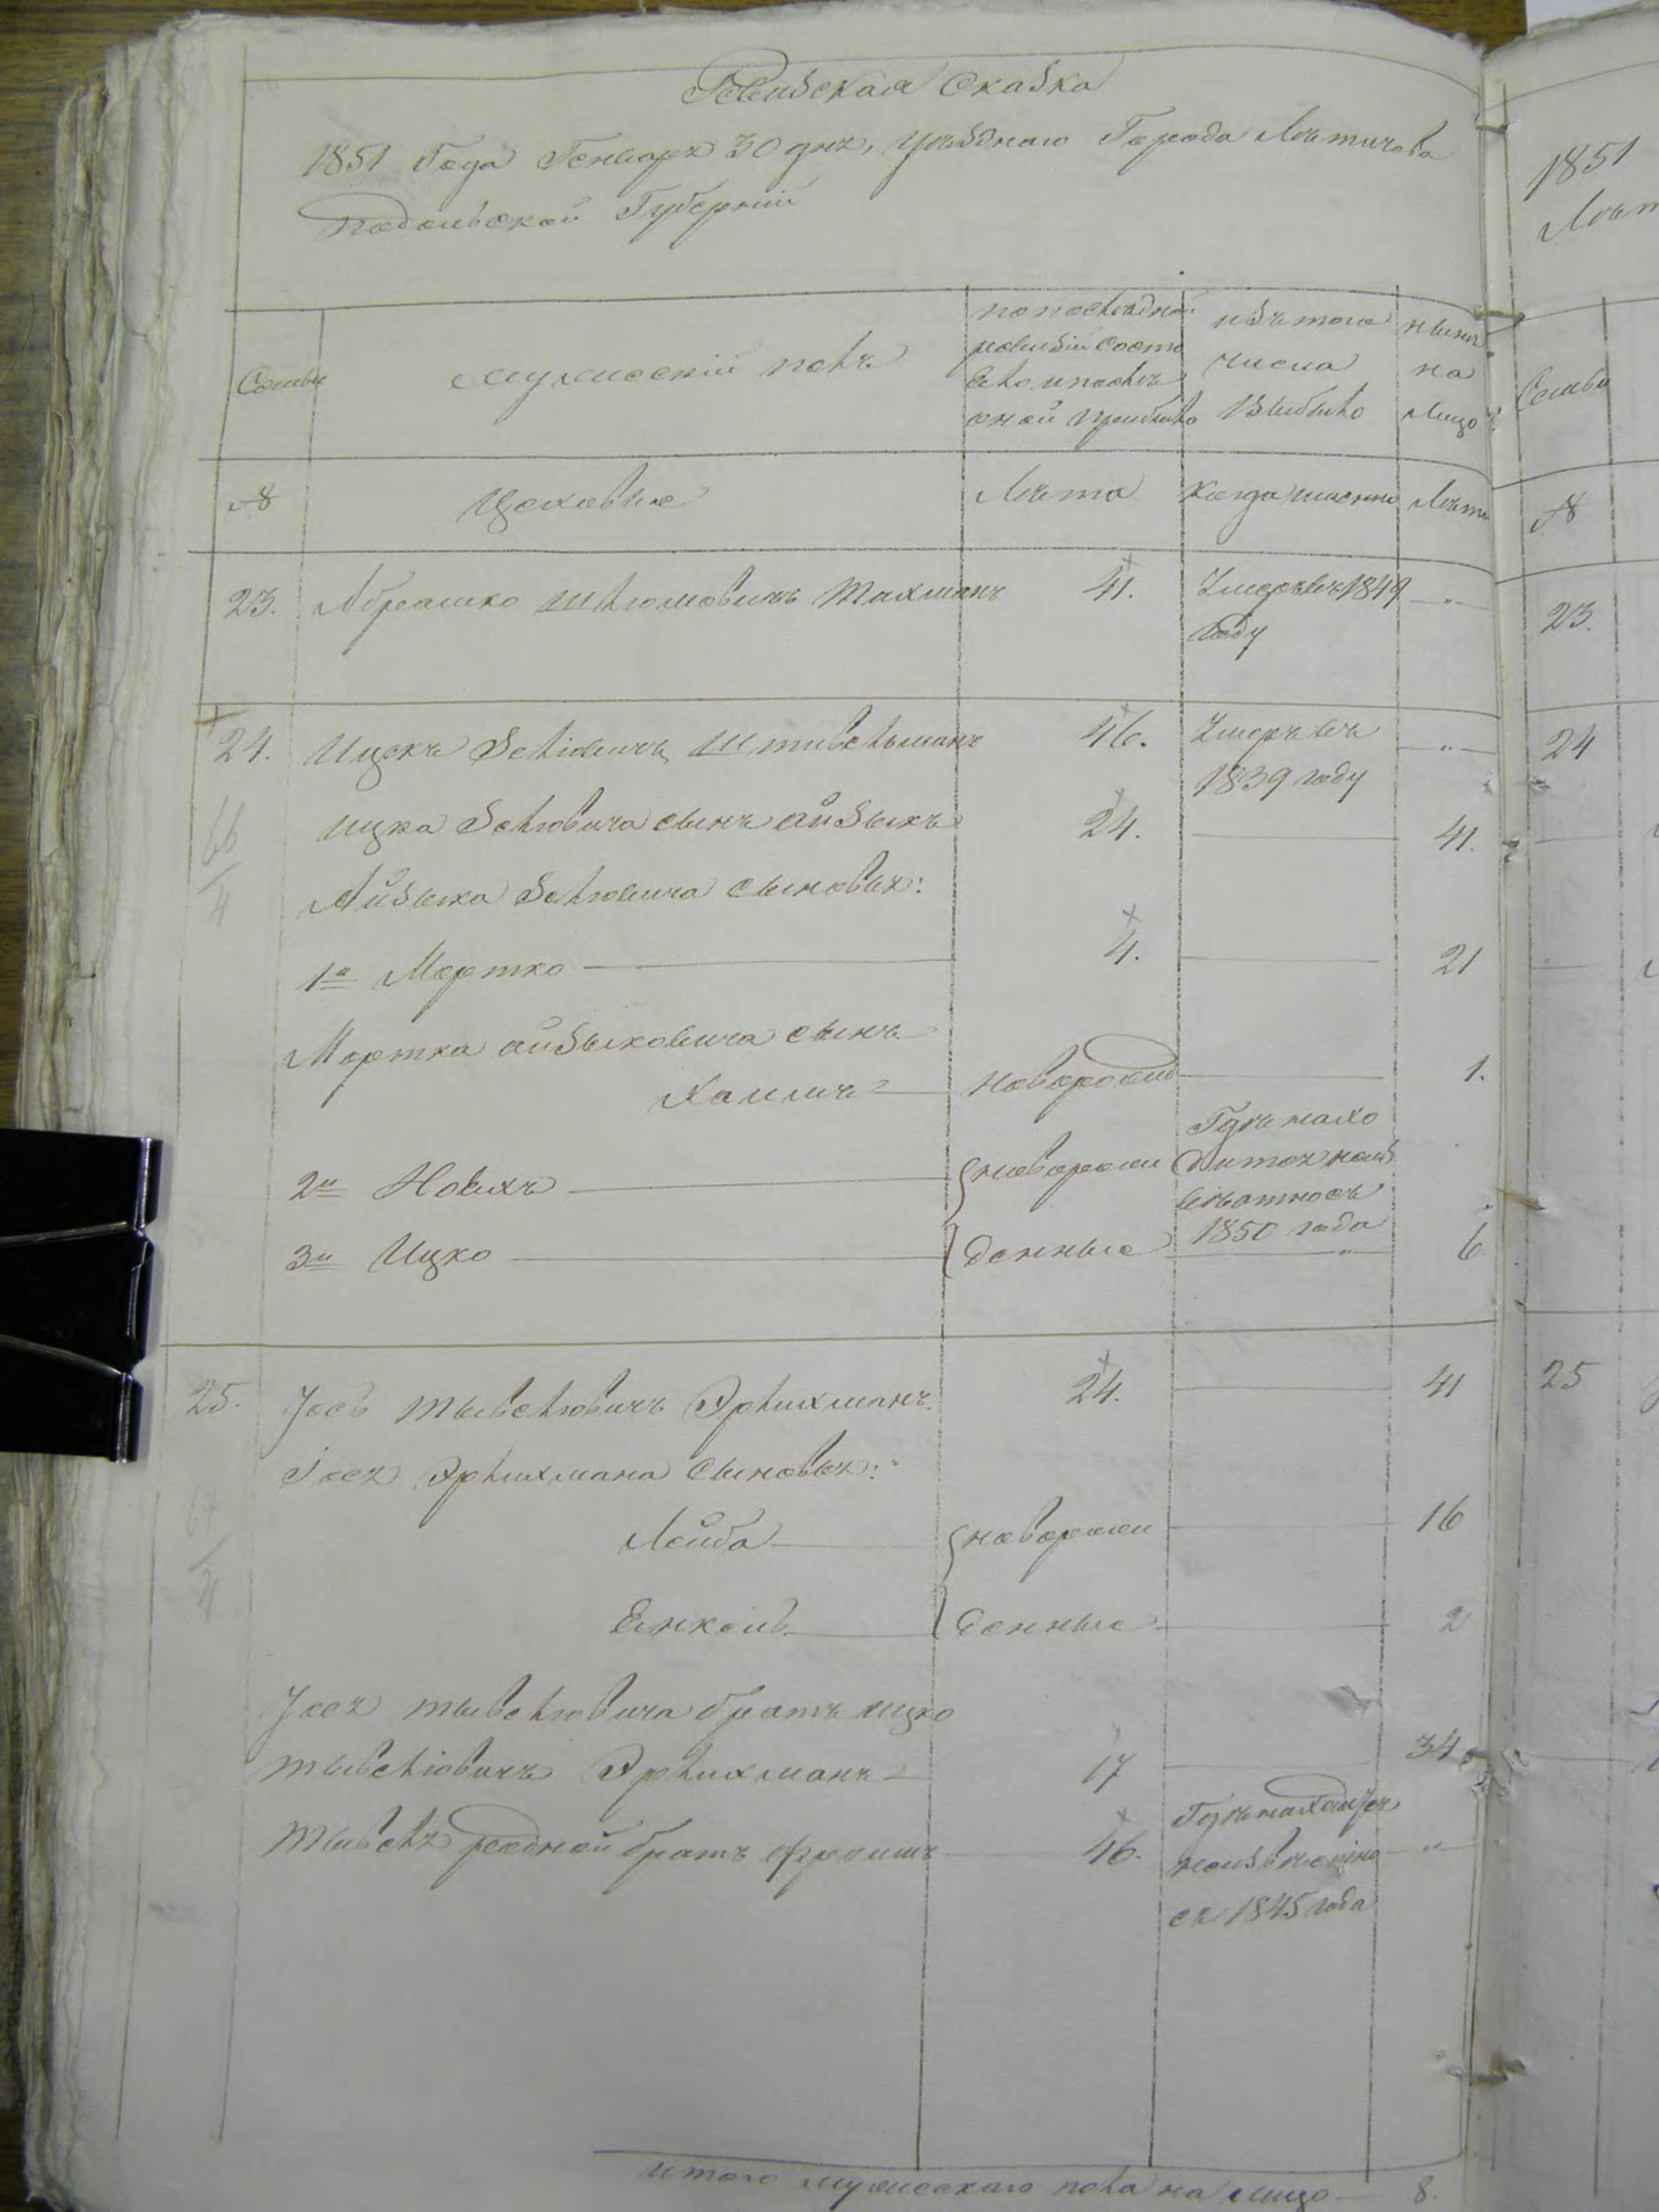 Ревизская Сказка
1851 Года Генваря 30 дня, уѣзднаго Города Лѣтичева
Подольской Губерніи
Семьи
мужескій полъ
по последней
ревизіи состо
яло и послѣ
оной прибыло
изъ того
числа
выбыло
нынѣ
на
лицо
№
Цеховые
Лѣта
Когда именно
Лѣта
23. Абрамко Шлюмовичъ Тахманъ 41. Умеръ въ 1849 — " —
году
24. Ицекъ Зельіовичъ Штивельманъ 46. Умеръ въ — " —
1839 году
Ицка Зельовича сынъ Айзыкъ 24. 41.
Айзыка Зельовича сыновья:
1й Мортко 4. 21
Мортка Айзыковича сынъ
Хаимъ новорожд 1.
2й Новихъ новорожден
3й Ицко денные 6
Гдѣ нахо
дится неиз
вѣстно съ
1850 года
25. Іось Тывельовичъ Эрлихманъ 24. 41
Іося Эрлихмана сыновья:
Лейба новорожен 16
Янкель денные 2
Іося Тывельовича братъ Ицко
Тывельовичъ Эрлихманъ 17 34
Тывеля родной братъ Фроимъ 46. — " —
Гдѣ находится
неизвѣстно
съ 1845 года
Итого мужескаго пола на лицо — 8.
1851
Лѣт
Семьи
№
23.
24
25